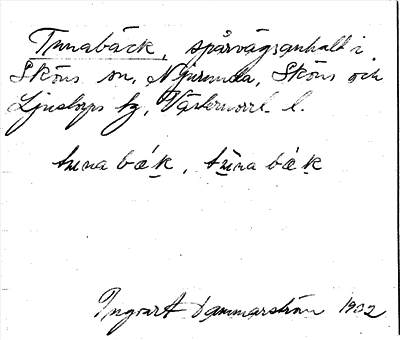 Tunabäck, spårvägsanhalt i
Sköns sn, Njurunda, Sköns och
Ljustorps tg, Västernorrl. l.
tuna bæk, tüna bæk
Ingvart Dammarström 1932